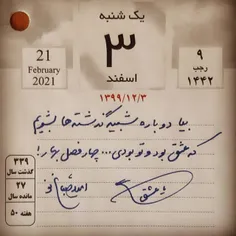 یک شنبه
۳
اسفند
21
February
2021
۹
رجب
۱۴۴۲
۱۳۹۹/۱۲/۳
بیا دوباره شبیه گذشته ها بشویم
که عشق بود و تو بودی... چهار فصل بهار!
۳۳۹
گذشت سال
۲۷
مانده سال
هفته ۵۰